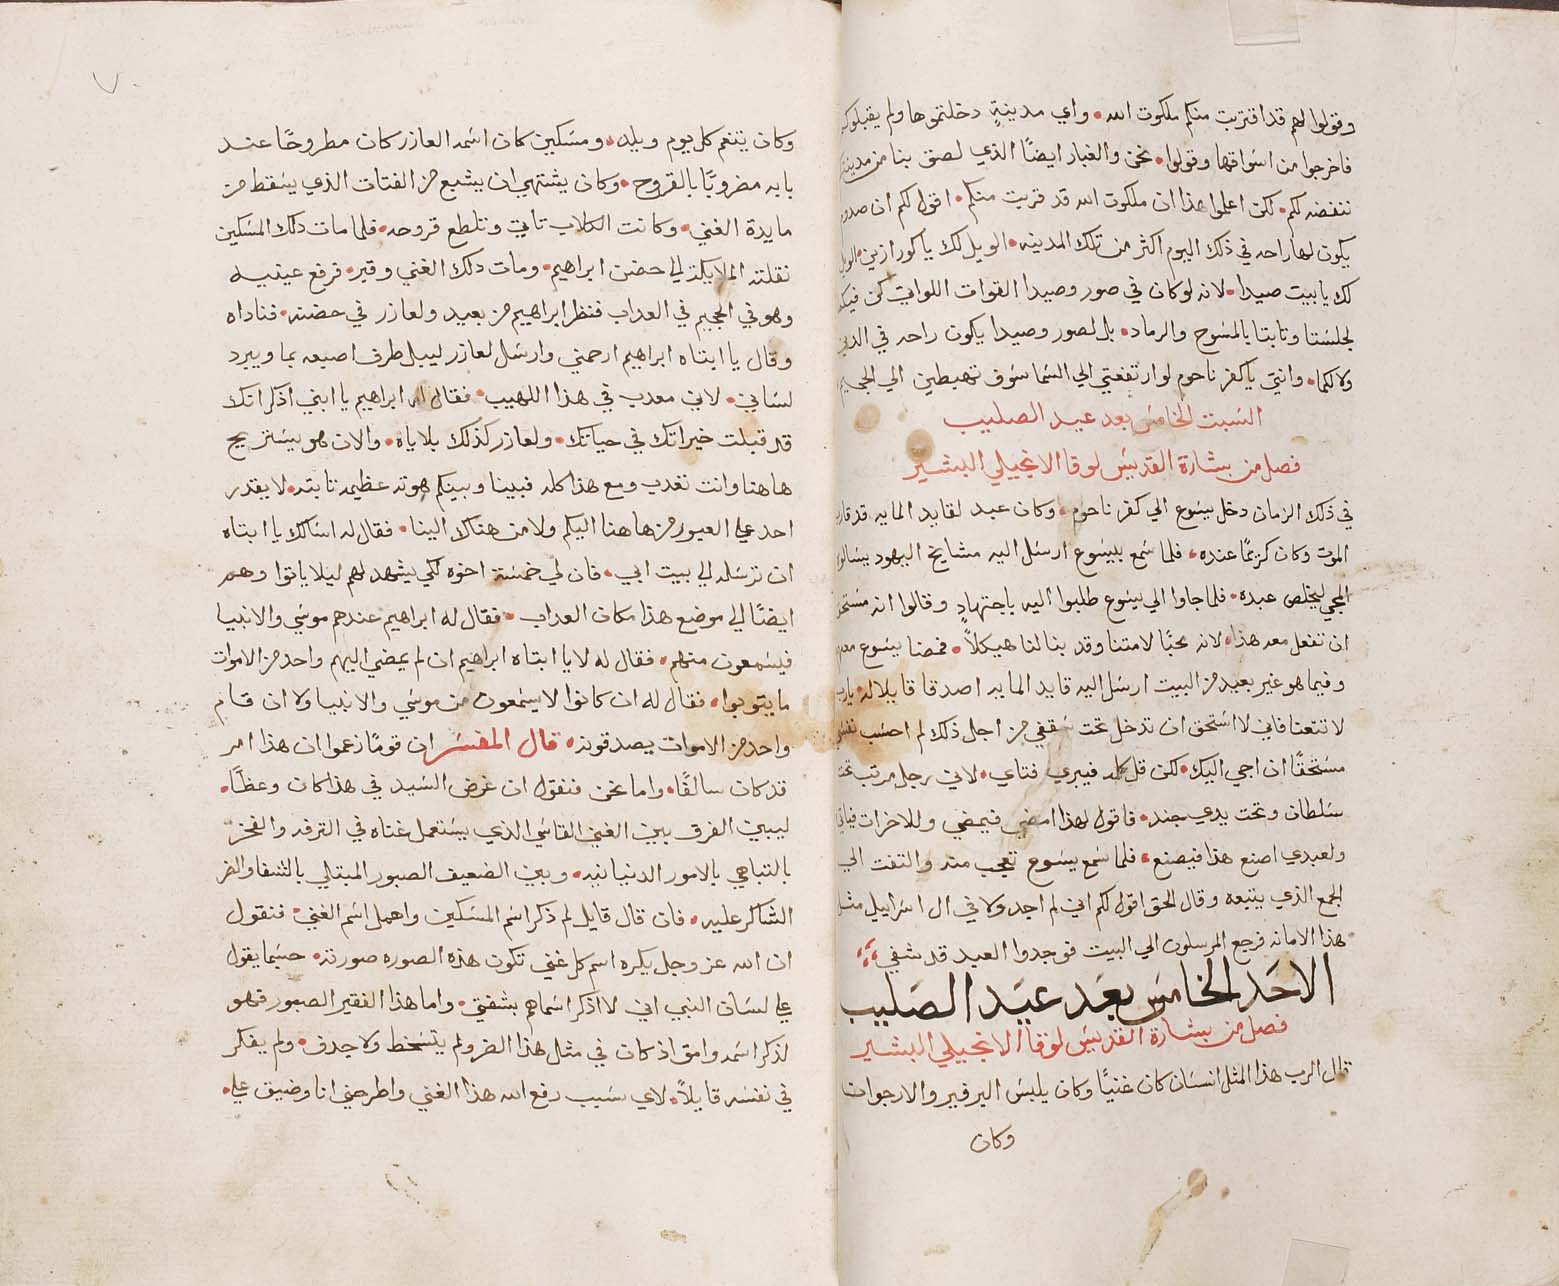 وقولوا لهم قد اقتربت منكم ملكوت الله• واي مدينةٍ دخلتموها ولم يقبلوكم
فاخرجوا من اسواقها وقولوا• نحن والغبار ايضًا الذي لصق بنا من مدينتكم
ننفضه لكم• لكن اعلموا هذا ان ملكوت الله قد قربت منكم• اقول لكم ان صدوم
يكون لها راحه في ذلك اليوم اكثر من تلك المدينه• الويل لك يا كورازين• الويل
لك يا بيت صيدا• لانه لو كان في صور وصيدا القوات اللواتي كن فيكما
لجلستا وتابتا بالمسوح والرماد• بل لصور وصيدا يكون راحه في الدين
ولا لكما• وانتي يا كفر ناحوم لو ارتفعتي الي السما سوف تهبطين الي الجحيم
السبت الخامس بعد عيد الصليب
فصل من بشارة القديس لوقا الانجيلي البشير
في ذلك الزمان دخل يسوع الي كفر ناحوم• وكان عبد لقايد المايه قد قارب
الموت وكان كريمًا عنده• فلما سمع بيسوع ارسل اليه مشايخ اليهود يسالوه
المجي ليخلص عبده• فلما جاوا الي يسوع طلبوا اليه باجتهادٍ وقالوا انه مستحق
ان تفعل معه هذا• لانه محبًا لامتنا وقد بنا لنا هيكلاً• فمضا يسوع معهم
وفيما هو غير بعيد من البيت ارسل اليه قايد المايه اصدقا قايلا له• يارب
لا تتعنا فاني لا استحق ان تدخل تحت سقفي من اجل ذلك لم احسب نفسي
مستحقًا ان اجي اليك• لكن قل كلمه فيبري فتاي• لاني رجل مرتب تحت
سلطان وتحت يدي جند• فاقول لهذا امضي فيمضي وللاخرات فياتي
ولعبدي اصنع هذا فيصنع• فلما سمع يسوع تعجب منه والتفت الي
الجمع الذي يتبعه وقال الحق اقول لكم اني لم اجد ولا في ال اسراييل مثل
هذا الامانه فرجع المرسلون الي البيت فوجدوا العبد قد شفي
الاحد الخامس بعد عيد الصليب
فصل من بشارة القديس لوقا الانجيلي البشير
قال الرب هذا المثل انسان كان غنيًا وكان يلبس البرفير والارجوان
وكان
وكان يتنعم كل يوم ويلذ• ومسكين كان اسمه العازر كان مطروحًا عند
بابه مضروبًا بالقروح• وكان يشتهي ان يشبع من الفتات الذي يسقط من
مايدة الغني• وكانت الكلاب تاتي وتلطع قروحه• فلما مات ذلك المسكين
نقلته الملايكة الي حضن ابراهيم• ومات ذلك الغني وقبر• فرفع عينيه
وهو في الجحيم في العداب فنظر ابراهيم من بعيد ولعازر في حضنه• فناداه
وقال يا ابتاه ابراهيم ارحمني وارسل لعازر ليبل طرف اصبعه بما ويبرد
لساني• لاني معدب في هذا اللهيب• فقال له ابراهيم يا ابني اذكر انك
قد قبلت خيراتك في حياتك• ولعازر كذلك بلاياه• والان هو يستريح
هاهنا وانت تعدب ومع هذا كله فبيننا وبينكم هوته عظيمه ثابته• لا يقدر
احد علي العبور من هاهنا اليكم ولا من هناك الينا• فقال له اسالك يا ابتاه
ان ترسله الي بيت ابي• فان لي خمسة اخوه لكي يشهد لهم ليلا ياتوا وهم
ايضًا الي موضع هذا مكان العداب• فقال له ابراهيم عندهم موسي والانبيا
فيسمعون منهم• فقال له لا يا ابتاه ابراهيم ان لم يمضي اليهم واحد من الاموات
ما يتوبوا• فقال له ان كانوا لا يسمعون من موسي والانبيا ولا ان قام
واحد من الاموات يصدقونه• قال المفسر ان قومًا زعموا ان هذا امر
قد كان سالفًا• واما نحن فنقول ان غرض السيد في هذا كان وعظًا•
ليبين الفرق بين الغني القاسي الذي يستعمل غناه في الترفه والفخر
بالتباهي بالامور الدنيانيه• وبين الضعيف الصبور المبتلي بالشقا والضر
الشاكر عليه• فان قال قايل لم ذكر اسم المسكين واهمل اسم الغني• فنقول
ان الله عز وجل يكره اسم كل غني تكون هذه الصوره صورته• حسبما يقول
علي لسان النبي اني لا اذكر اسماهم بشفتي• واما هذا الفقير الصبور فهو
لذكر اسمه وامق اذ كان في مثل هذا الضر ولم يتسخط ولا جدف• ولم يفكر
في نفسه قايلاً• لاي سبب رفع الله هذا الغني واطرحني انا وضيق علي•